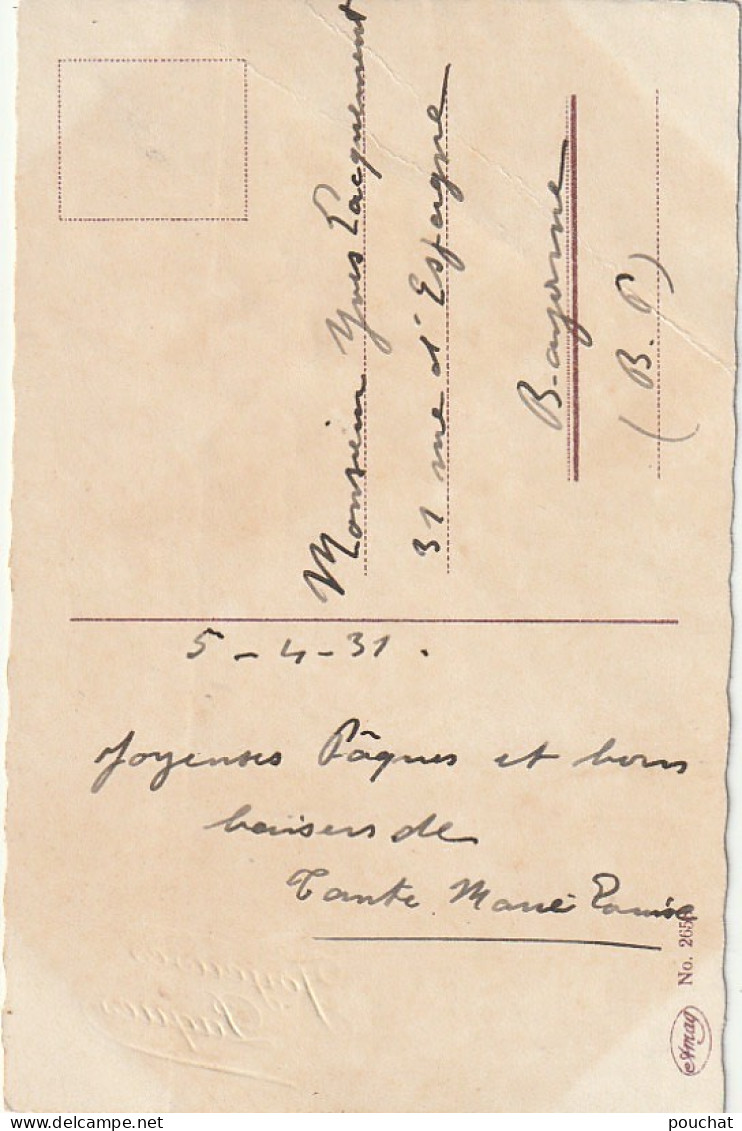 Monsieur Yves Lacquement
31 rue d'Espagne
Bayonne
(B. P)
5-4-31.
Joyeuses Pâques et bons
baisers de
Tante Marie Louise
Joyeuses
Pâques
Amag
No. 265
pouchat